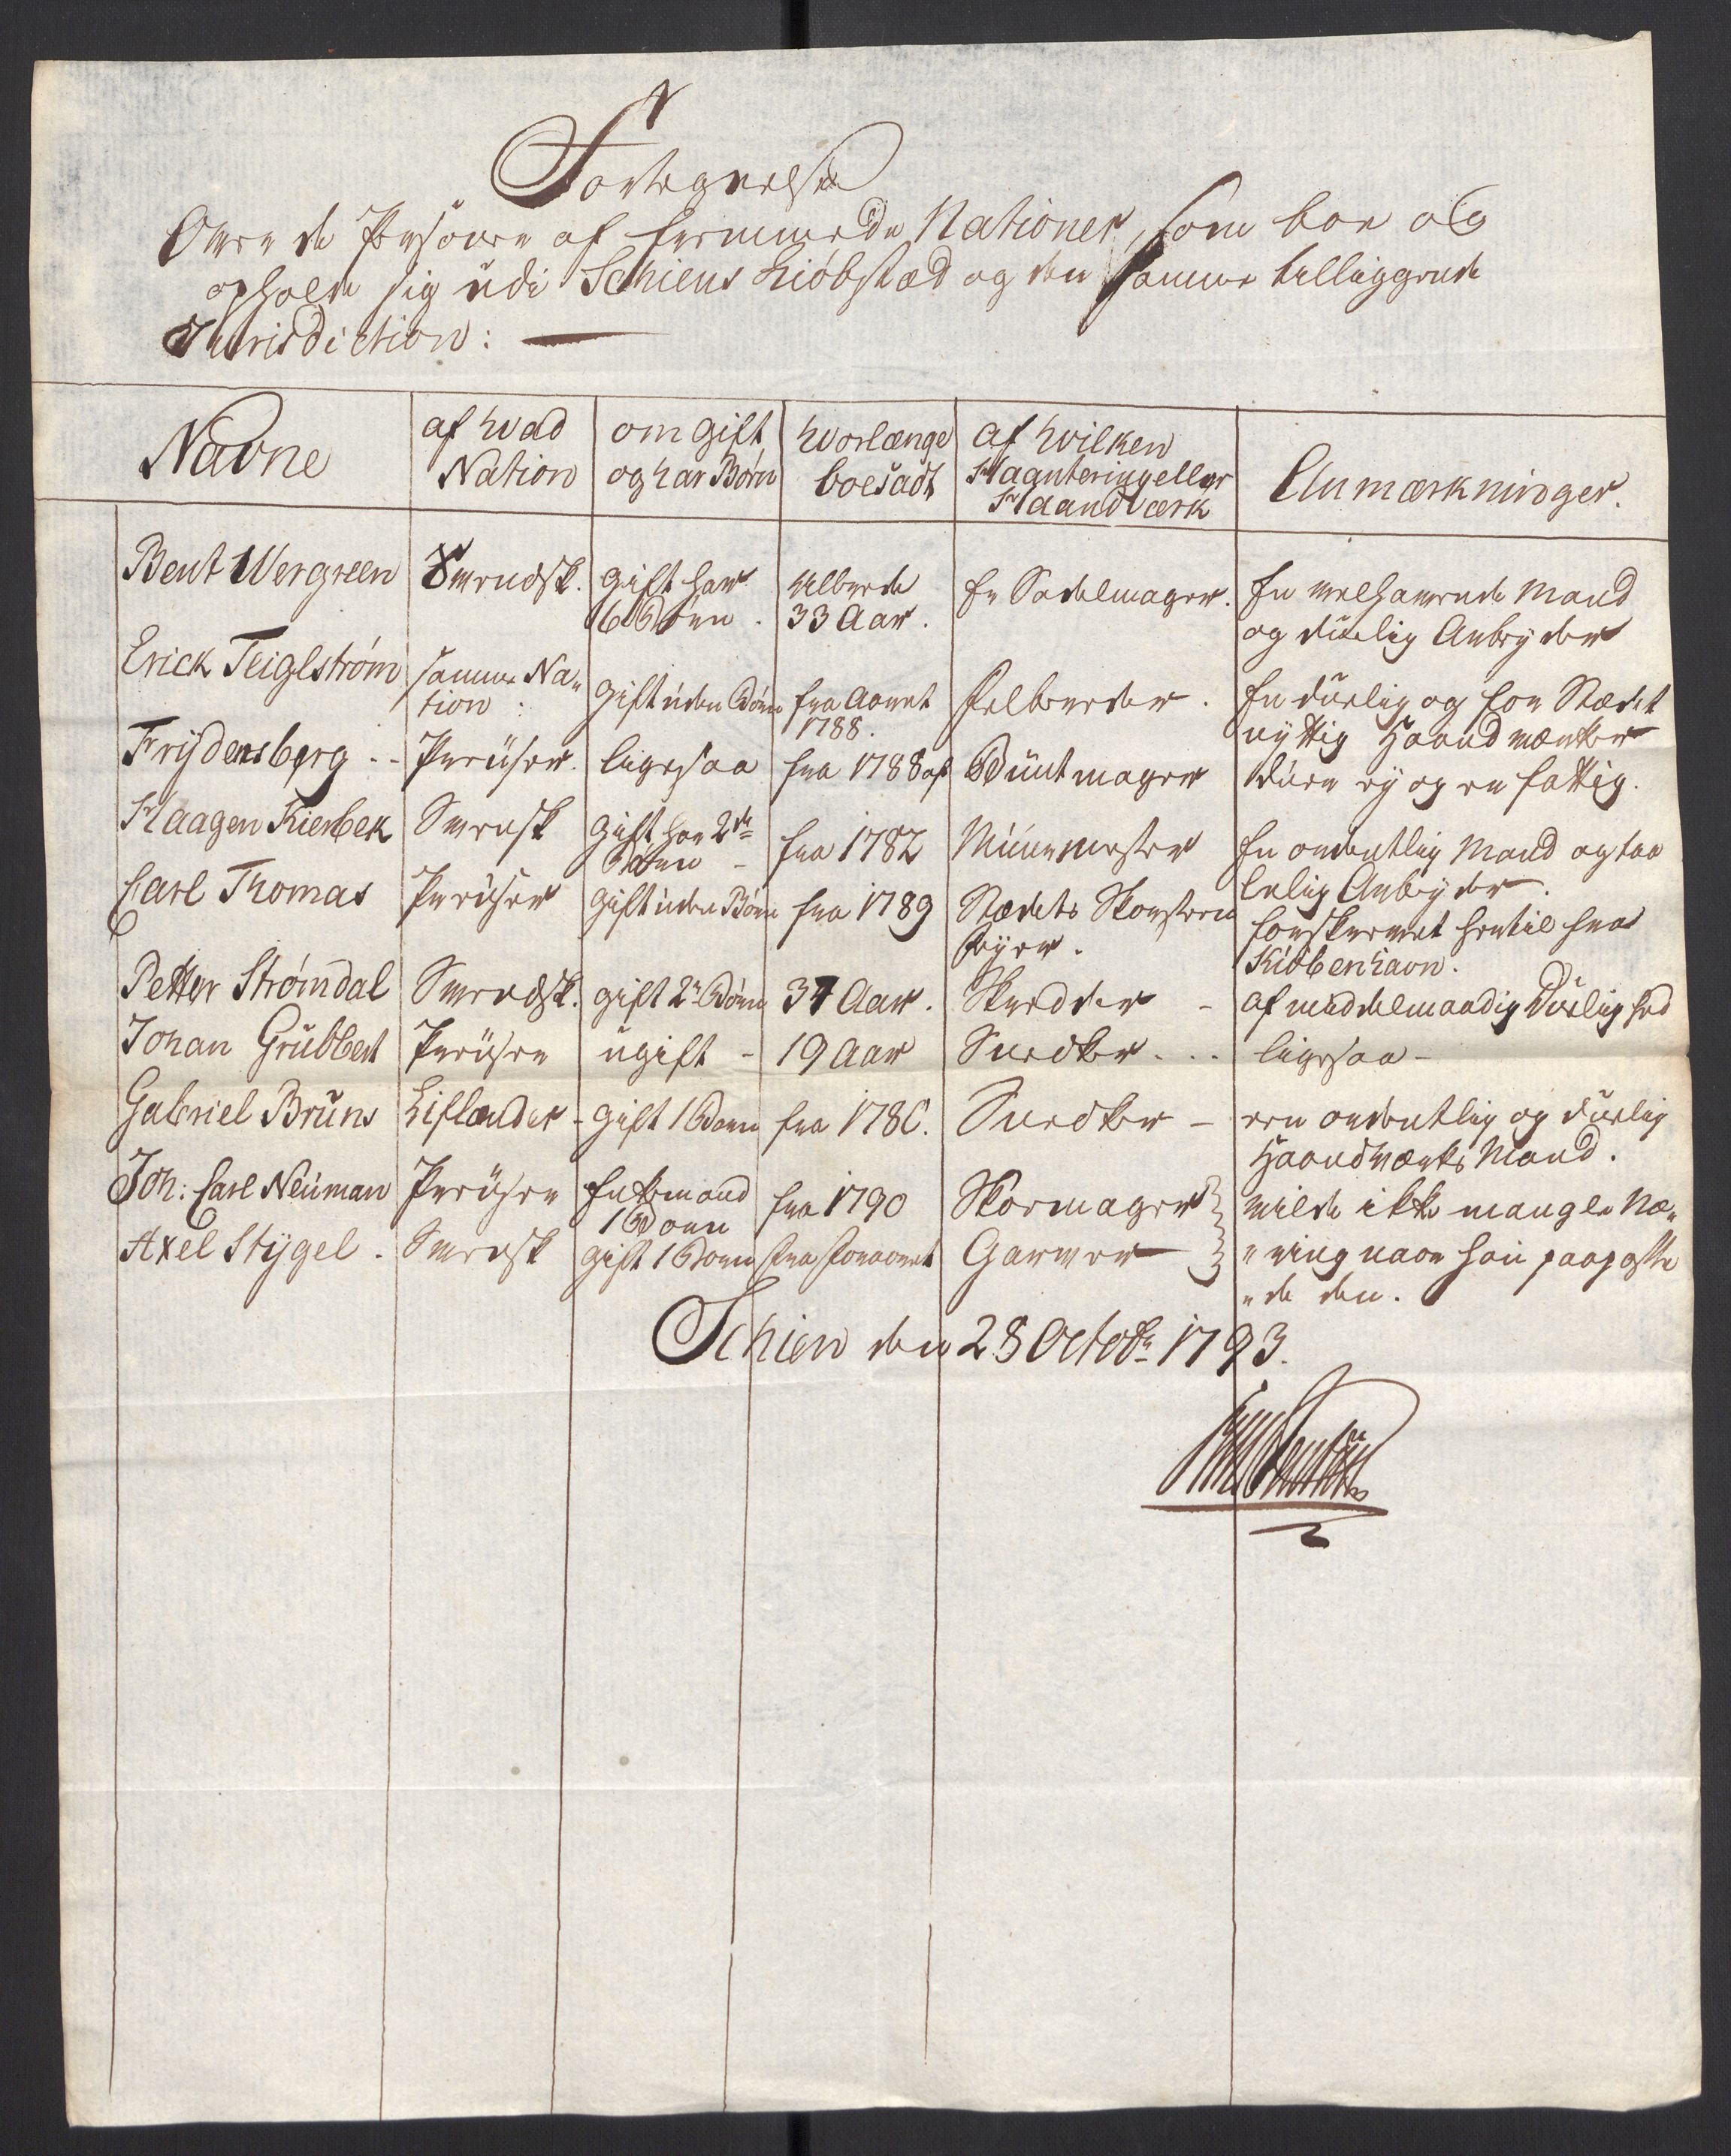 Fortegnelse
Over de Personer af fremmede Nationer, som boe og
opholde sig udi Schiens Kiøbstad og den samme tilliggende
Jurisdiction:
Navne | af hvad Nation | om gift og har Børn | hvorlænge boesadt | af hvilken Haantering eller Haandværk | Anmærkninger.
Bent Wergreen | Svendsk. | gift har 6 Børn. | allerede 33 Aar. | En Sadelmager. | En velhavende Mand og duelig Arbeyder
Erick Teiglstrøm | samme Nation: | Gift uden Børn | fra Aaret 1788. | Felbereder. | En duelig og for Stædet nyttig Haandværker
Frijdensberg .. | Preuser. | ligesaa | fra 1788 af | Buntmager | duer ej og er fattig.
Haagen Kierbek | Svensk | Gift har 2de Børn - | fra 1782 | Muurmester | En ordentlig Mand og taalelig Arbeyder.
Carl Thomas | Preuser | Gift uden Børn | fra 1789 | Stædets Skorsteen Feyer. | forskrevet hertil fra Kiøbenhavn.
Petter Strømdal | Svendsk. | gift 2 Børn | 37 Aar. | Skrædder - | af middelmaadig Duelighed
Johan Grubbert | Preuser | ugift - | 19 Aar | Snedker ... | ligesaa -
Gabriel Bruns | Liflænder - | gift 1 Barn | fra 1786. | Snedker - | een ordentlig og duelig Haandværks Mand.
Joh: Carl Neuman | Preuser | Enkemand 1 Barn | fra 1790 | Skoemager | vilde ikke mangle Næ-
Axel Stygel. | Svensk | gift 1 Barn | fra foraaret | Garver | "ring naar han paapasse
"de den.
Schien den 28 Octobr 1793.